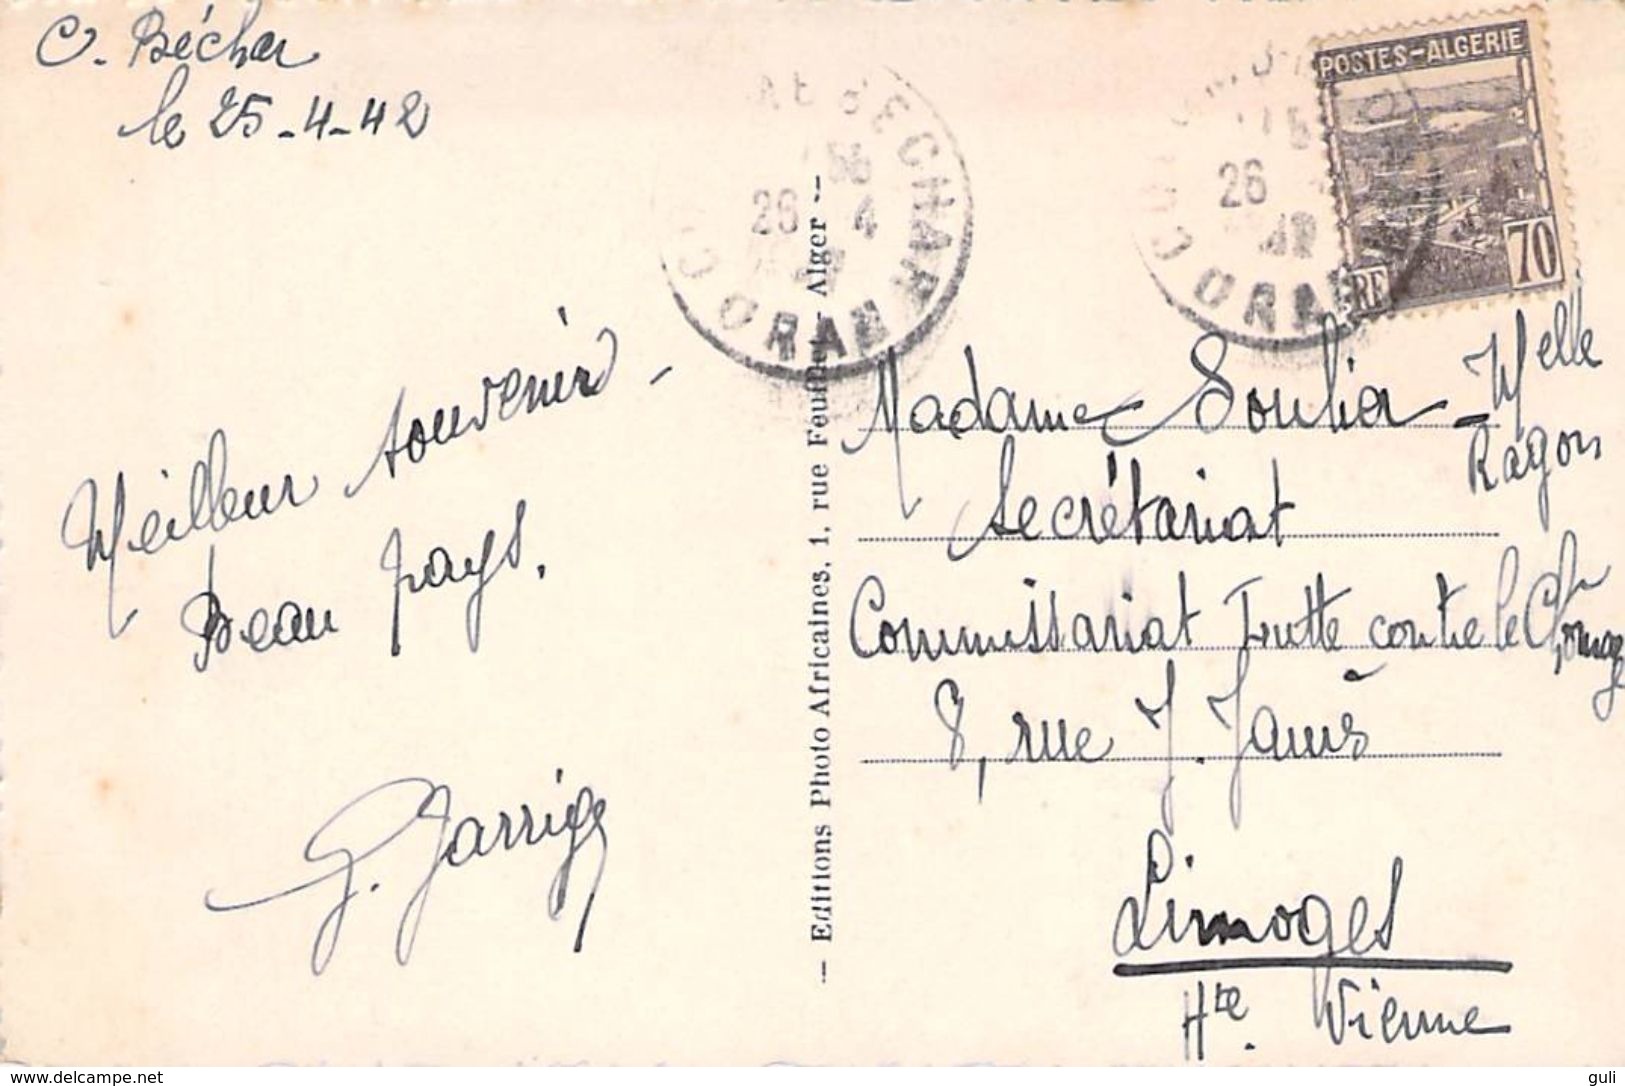 C. Béchar
le 25-4-42
Meilleur souvenir -
Beau pays.
G. Garrigs
- Editions Photo Africaines, 1, rue Feuillet - Alger -
BECHAR
26 4
ORAN
POSTES-ALGERIE
RF 70
26
42
ORAN
Madame Soulier - Melle
Ragon
Secrétariat
Commissariat Lutte contre le Chomage
8, rue J. Jaurès
Limoges
Hte. Vienne
www.delcampe.net
guli